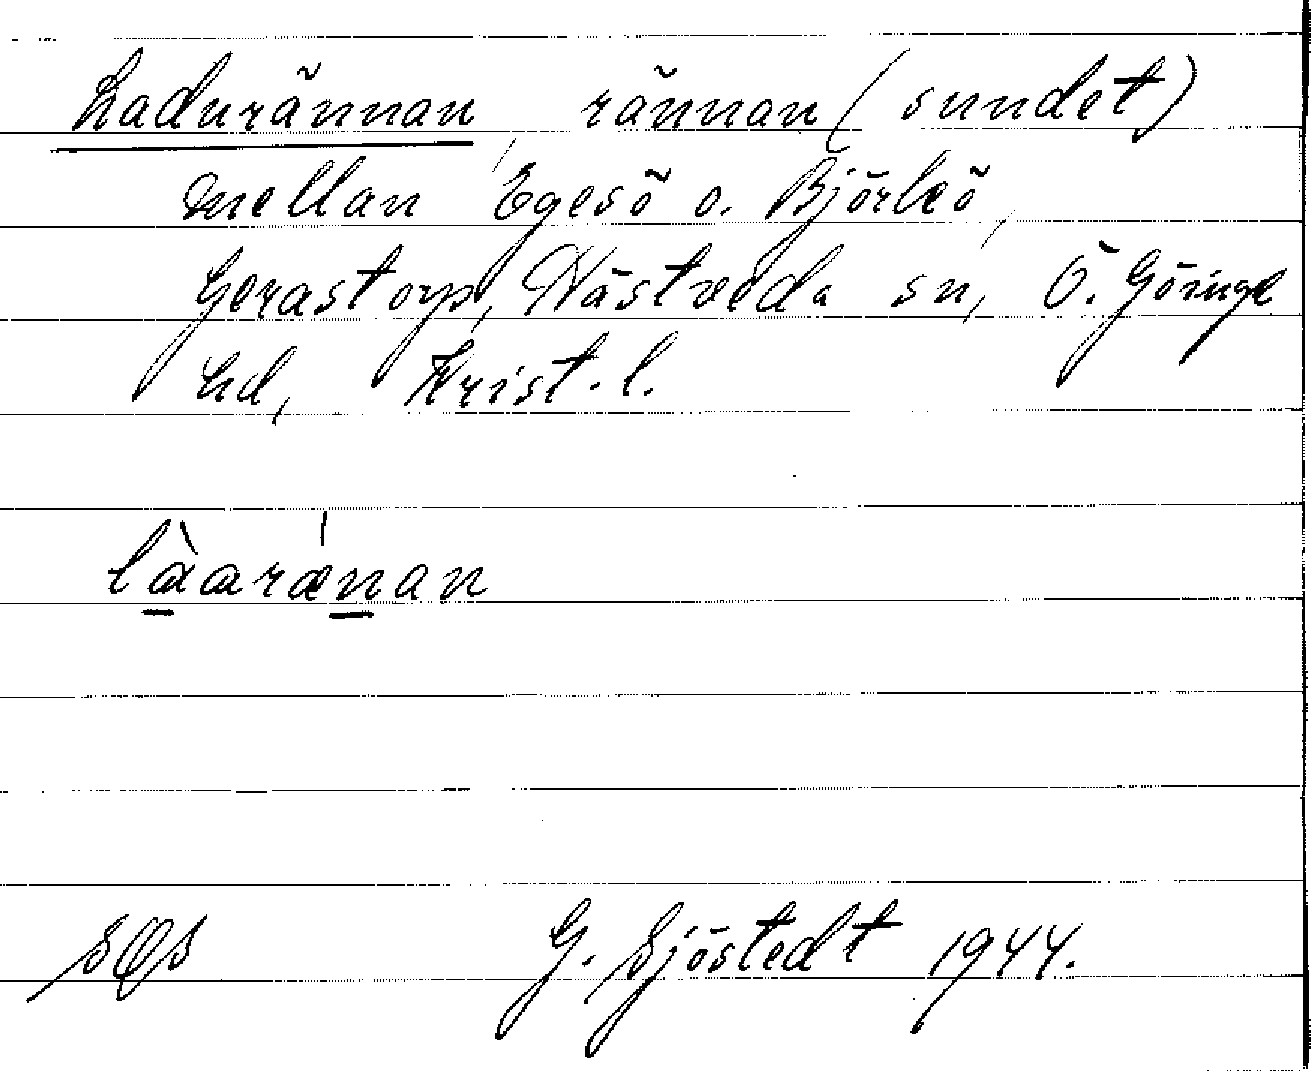 Ladurännan, rännan (sundet)
mellan Egesö o. Björkö,
Gerastorp, Hästveda sn, Ö. Göinge
hd, Krist. l.
làarænan
G. Sjöstedt 1944.